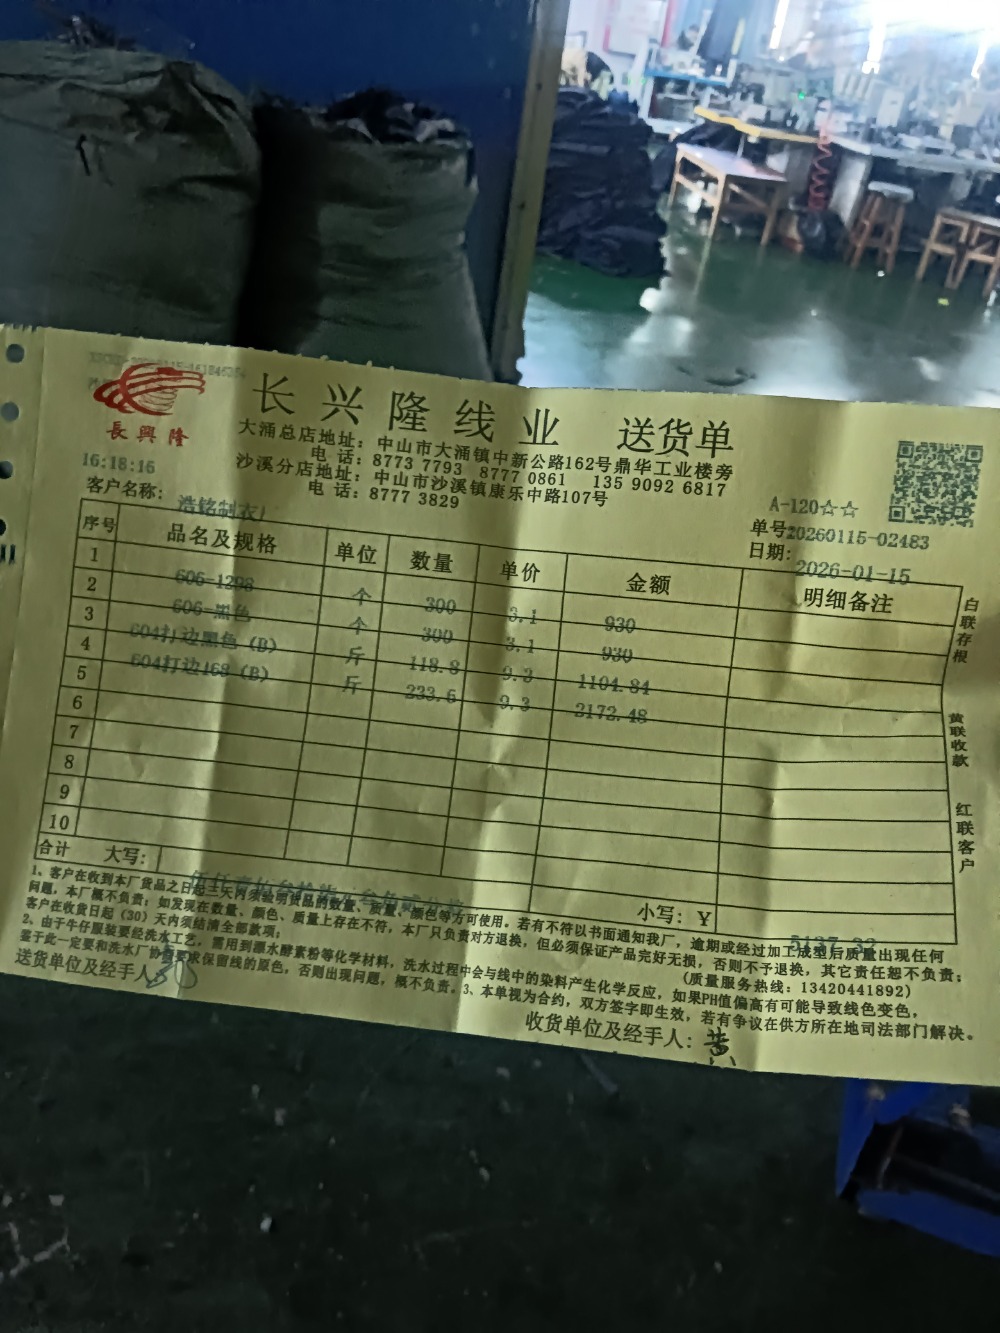 長興隆
长兴隆线业 送货单
大涌总店地址：中山市大涌镇中新公路162号鼎华工业楼旁
电 话：8773 7793 8777 0861 135 9092 6817
沙溪分店地址：中山市沙溪镇康乐中路107号
电 话：8777 3829
16:18:16
A-120☆☆
客户名称：浩铭制衣厂
单号20260115-02483
日期：2026-01-15
序号 品名及规格 单位 数量 单价 金额 明细备注
1 606-1298 个 300 3.1 930
2 606-黑色 个 300 3.1 930
3 604打边黑色（B） 斤 118.8 9.3 1104.84
4 604打边168（B） 斤 233.6 9.3 2172.48
5
6
7
8
9
10
合计 大写： 小写：¥ 5137.32
白联存根
黄联收款
红联客户
1、客户在收到本厂货品之日起三天内须验明货品的数量、质量、颜色等方可使用。若有不符以书面通知我厂，逾期或经过加工成型后质量出现任何
问题，本厂概不负责；如发现在数量、颜色、质量上存在不符，本厂只负责对方退换，但必须保证产品完好无损，否则不予退换，其它责任恕不负责；
客户在收货日起（30）天内须结清全部款项； （质量服务热线：13420441892）
2、由于牛仔服装要经洗水工艺，需用到漂水酵素粉等化学材料，洗水过程中会与线中的染料产生化学反应，如果PH值偏高有可能导致线色变色，
鉴于此一定要和洗水厂协商要求保留线的原色，否则出现问题，概不负责。3、本单视为合约，双方签字即生效，若有争议在供方所在地司法部门解决。
送货单位及经手人：
收货单位及经手人：黄